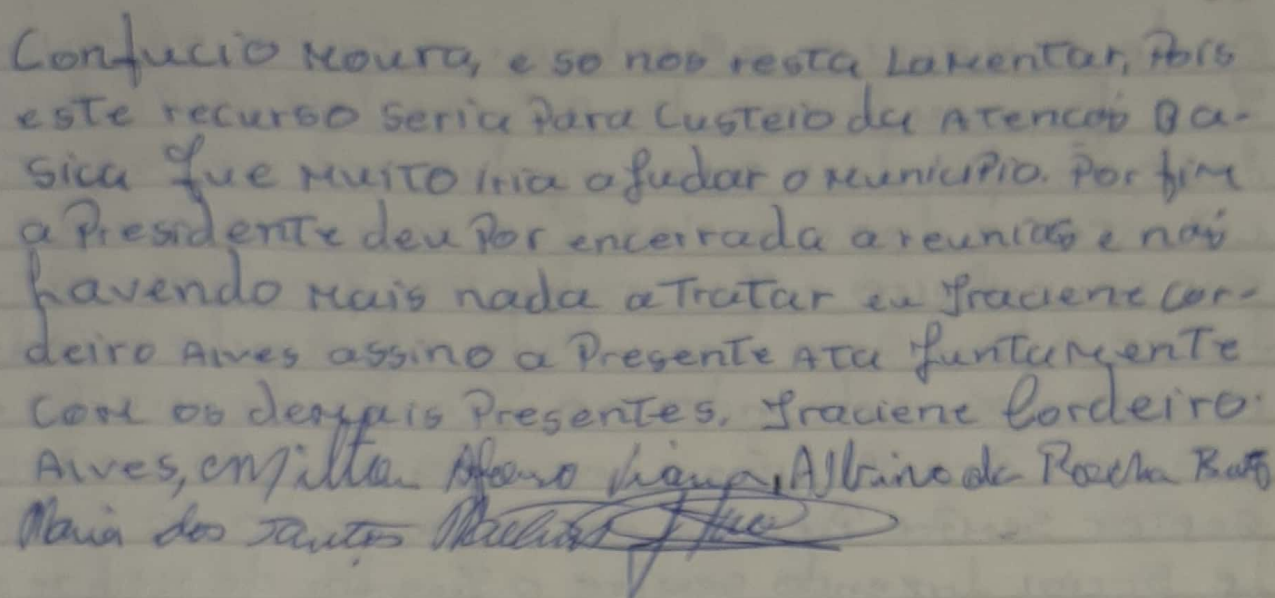 Confucio Moura, e so nos resta Lamentar, Pois
este recurso seria Para Custeio da Atencaõ Ba-
sica que Muito iria ajudar o Municipio. Por fim
a Presidente deu Por encerrada a reuniaõ e naõ
havendo Mais nada a Tratar eu Graciene Cor-
deiro Alves assino a Presente Ata juntamente
com os demais Presentes. Graciene Cordeiro
Alves, Albino da Rocha
Maria dos Santos